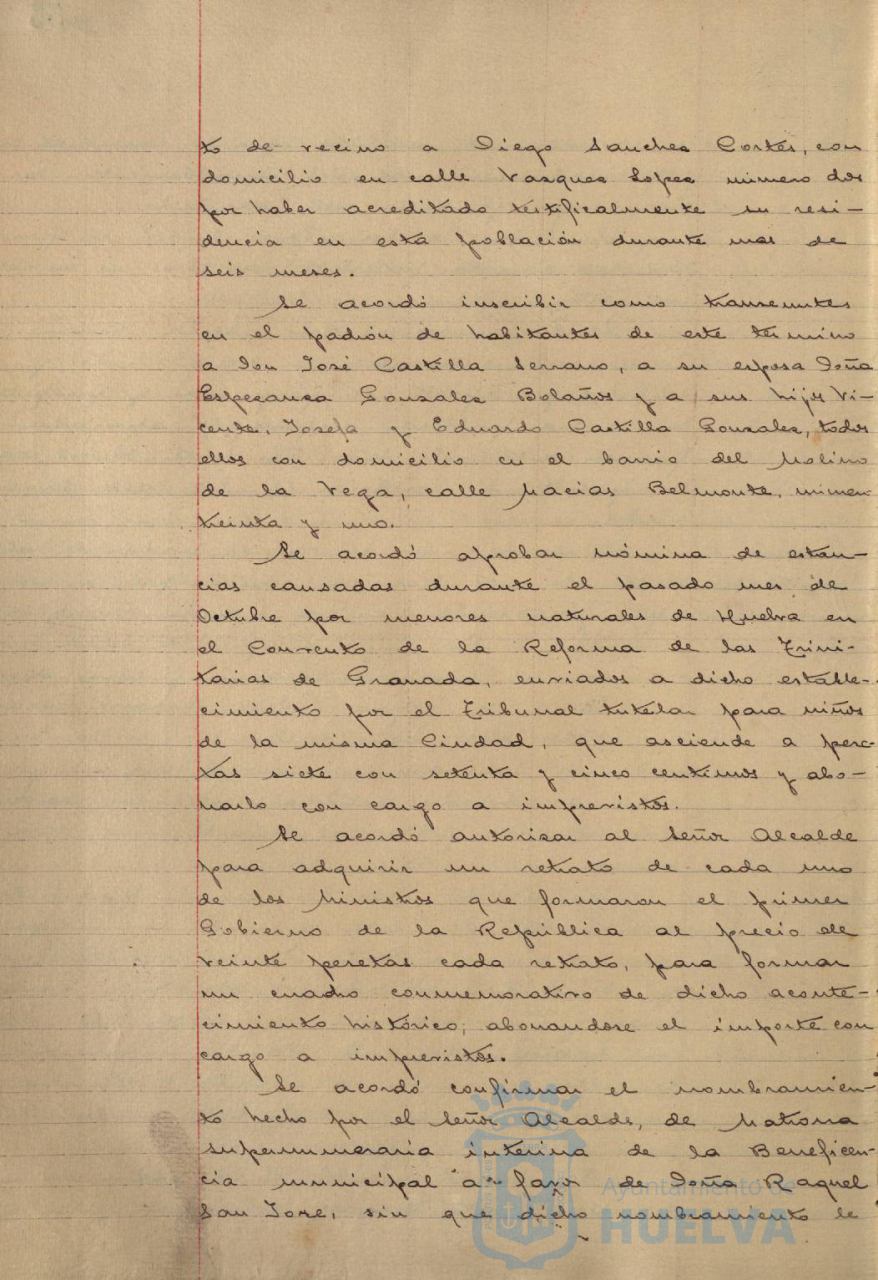 to de vecino a Diego Sanchez Cortés, con
domicilio en calle Vasquez Lopez número dos
por haber acreditado testificalmente su resi-
dencia en esta población durante mas de
seis meses.
Se acordó inscribir como transeuntes
en el padrón de habitantes de este término
a Don José Castilla Serrano, a su esposa Doña
Esperanza Gonzalez Bolaños y a sus hijos Vi-
cente, Josefa y Eduardo Castilla Gonzalez, todos
ellos con domicilio en el barrio del Molino
de la Vega, calle Macias Belmonte, número
treinta y uno.
Se acordó aprobar nómina de estan-
cias causadas durante el pasado mes de
Octubre por menores naturales de Huelva en
el Convento de la Reforma de las Trini-
tarias de Granada, enviados a dicho estable-
cimiento por el Tribunal tutelar para niños
de la misma Ciudad, que asciende a pese-
tas siete con setenta y cinco centimos y abo-
narlo con cargo a imprevistos.
Se acordó autorizar al Señor Alcalde
para adquirir un retrato de cada uno
de los Ministros que formaron el primer
Gobierno de la República al precio de
veinte pesetas cada retrato, para formar
un cuadro conmemorativo de dicho aconte-
cimiento histórico; abonandose el importe con
cargo a imprevistos.
Se acordó confirmar el nombramien-
to hecho por el Señor Alcalde, de Matrona
supernumeraria interina de la Beneficen-
cia municipal a favor de Doña Raquel
San Jose, sin que dicho nombramiento le
Ayuntamiento de
HUELVA